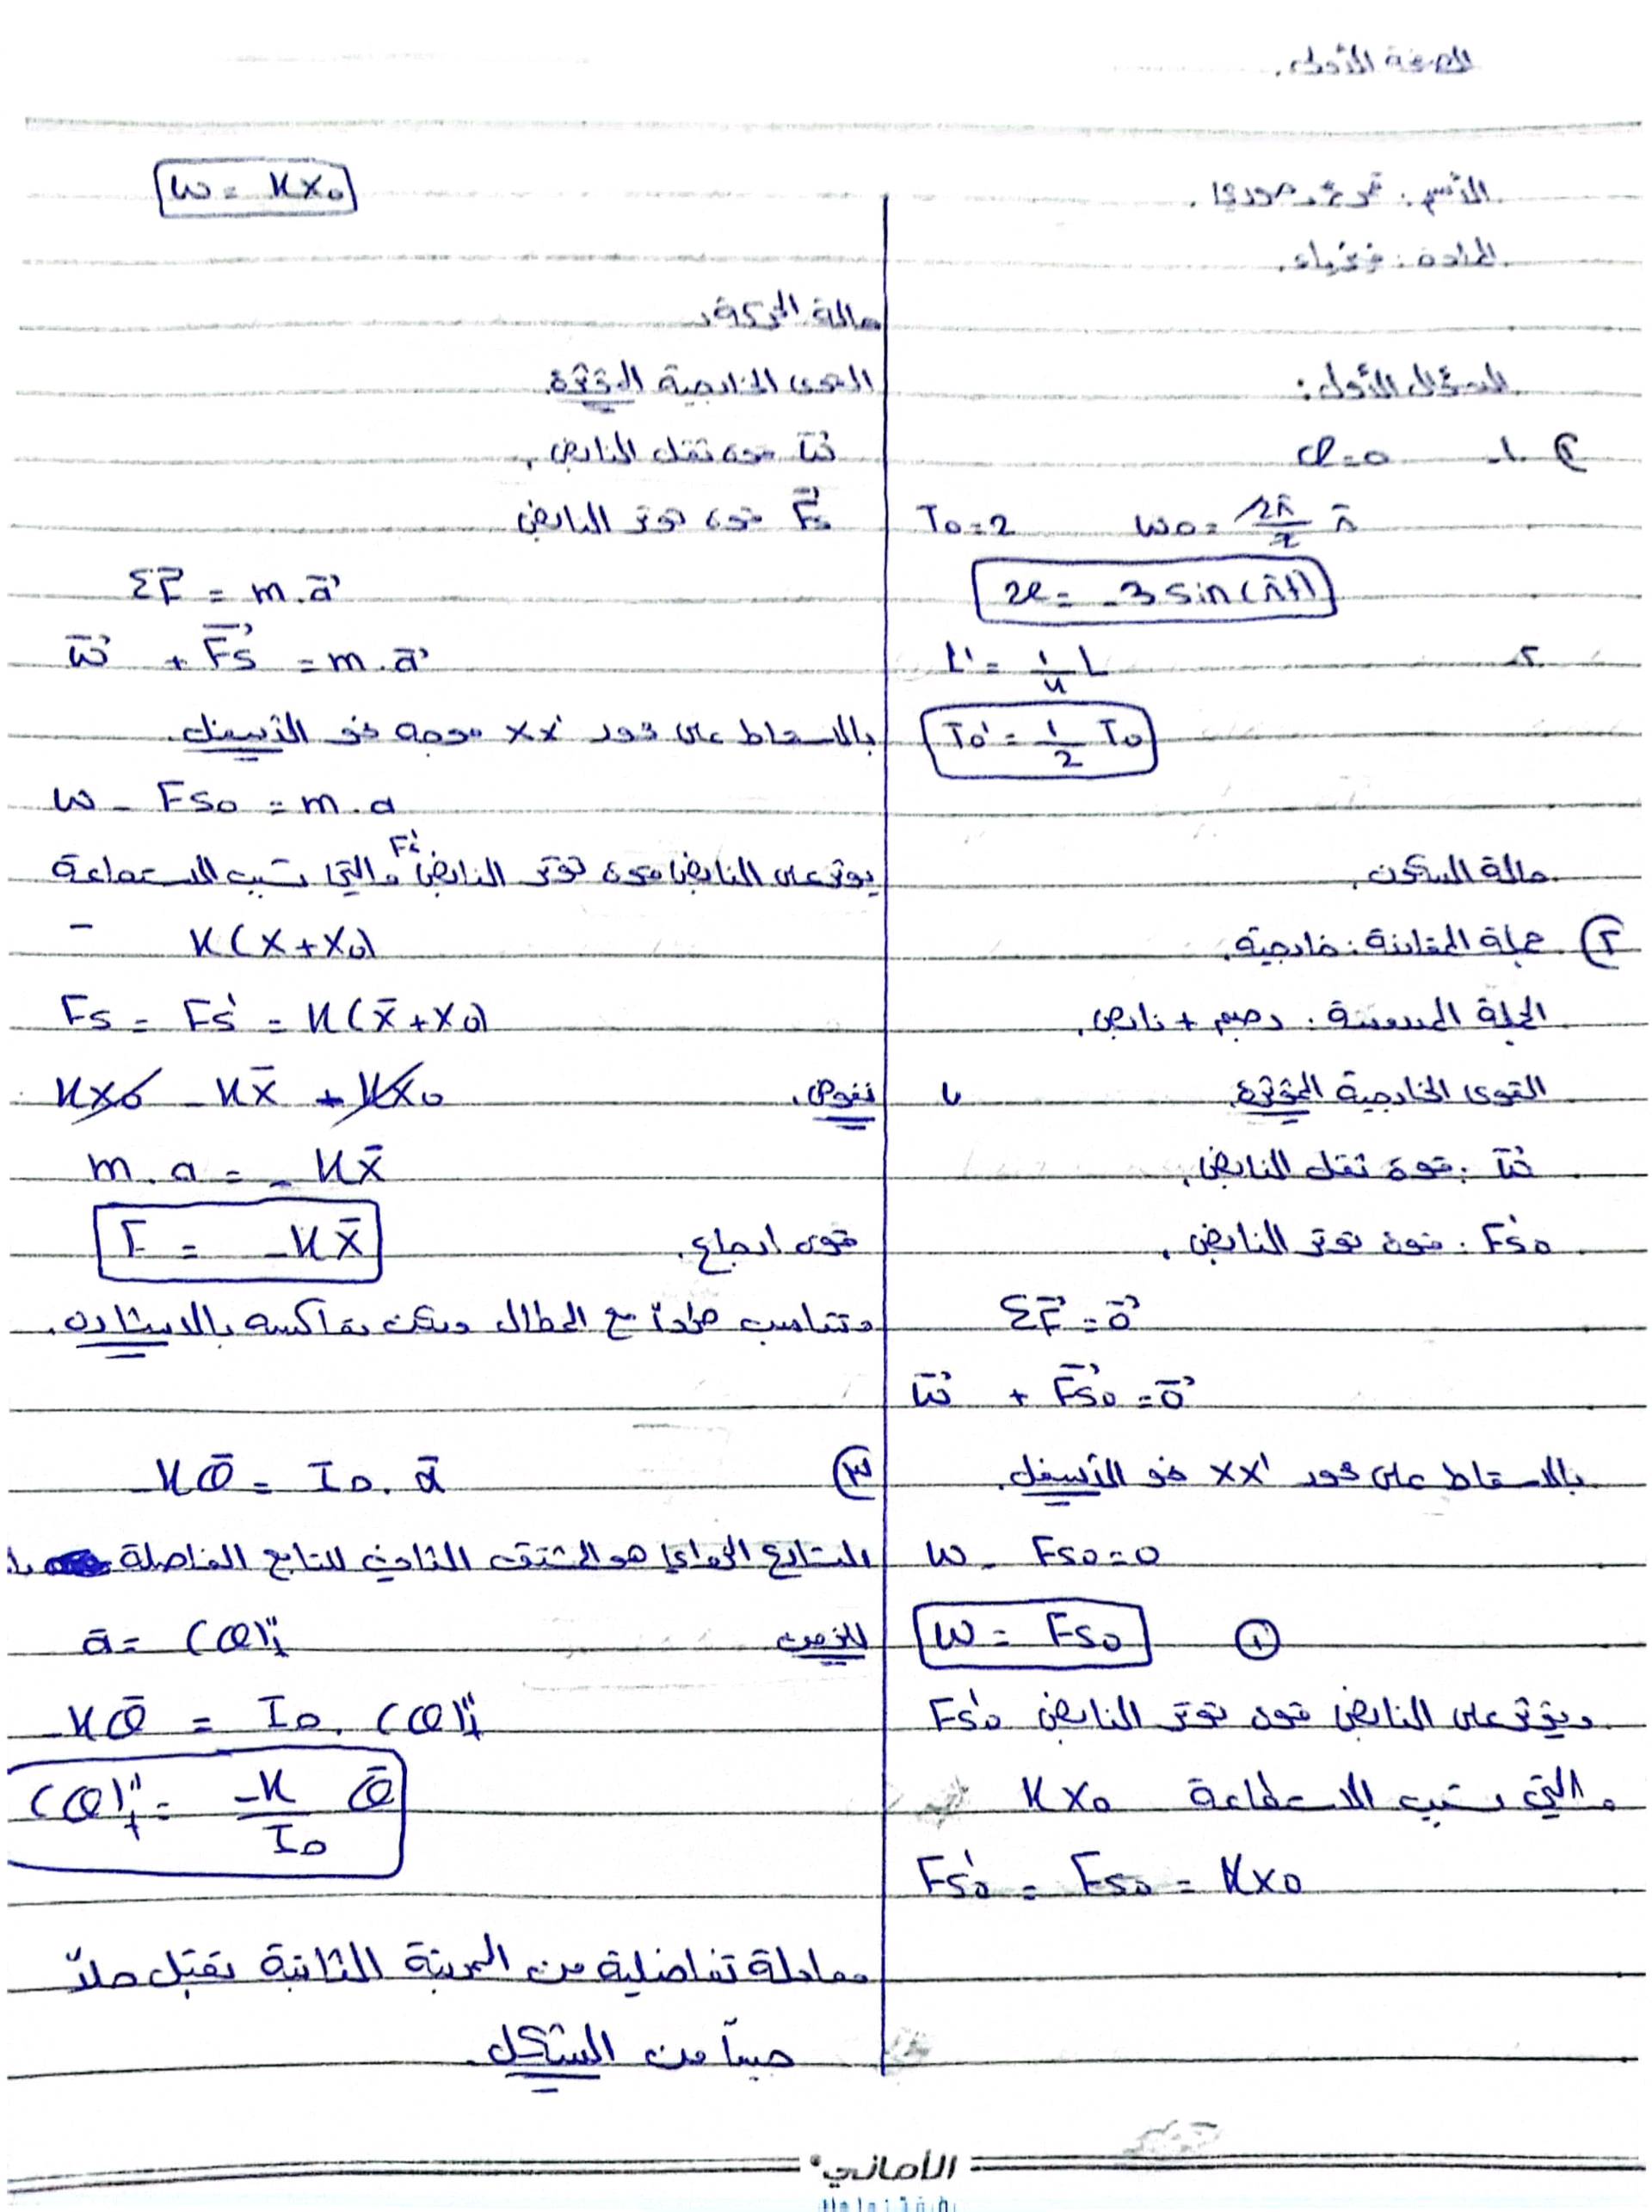 الصفحة الأولى.
المادة: فيزياء.
السؤال الأول:
1- φ=0
T0=2 ω0= 2π/2 π
x= -3 sin(πt)
2- L'= 1/4 L
T0'= 1/2 T0
حالة السكون
② جملة المقارنة: خارجية.
الجملة المدروسة: جسم + نابض.
القوى الخارجية المؤثرة
W: قوة ثقل النابض.
F's0: قوة توتر النابض.
ΣF=0
W + Fs0=0
بالاسقاط على محور xx' نحو الأسفل.
W - Fs0=0
W = Fs0 ①
ويؤثر على النابض قوة توتر النابض F's0
والتي تسبب الاستطالة Kx0
F's0 = Fs0 = Kx0
W = Kx0
حالة الحركة.
القوى الخارجية المؤثرة.
W قوة ثقل النابض.
Fs قوة توتر النابض
ΣF = m.a
W + Fs = m.a
بالاسقاط على محور xx' موجه نحو الأسفل.
W - Fs0 = m.a
يوثر على النابض قوة توتر النابض F's والتي تسبب الاستطاعة
K(x+x0)
Fs = F's = K(x+x0)
نعوض. Kx0 - Kx + Kx0
m.a = - Kx
F = -Kx
قوى ارجاع.
وتتناسب طرداً مع المطال وتعاكسه بالاشارة.
③ -Kθ = I0.α
التسارع الزاوي هو المشتق الثاني لتابع الفاصلة
للزمن α= (θ)''t
-Kθ = I0.(θ)''t
(θ)''t = -K/I0 θ
معادلة تفاضلية من المرتبة الثانية تقبل حلاً
جيباً من الشكل.
الأماني